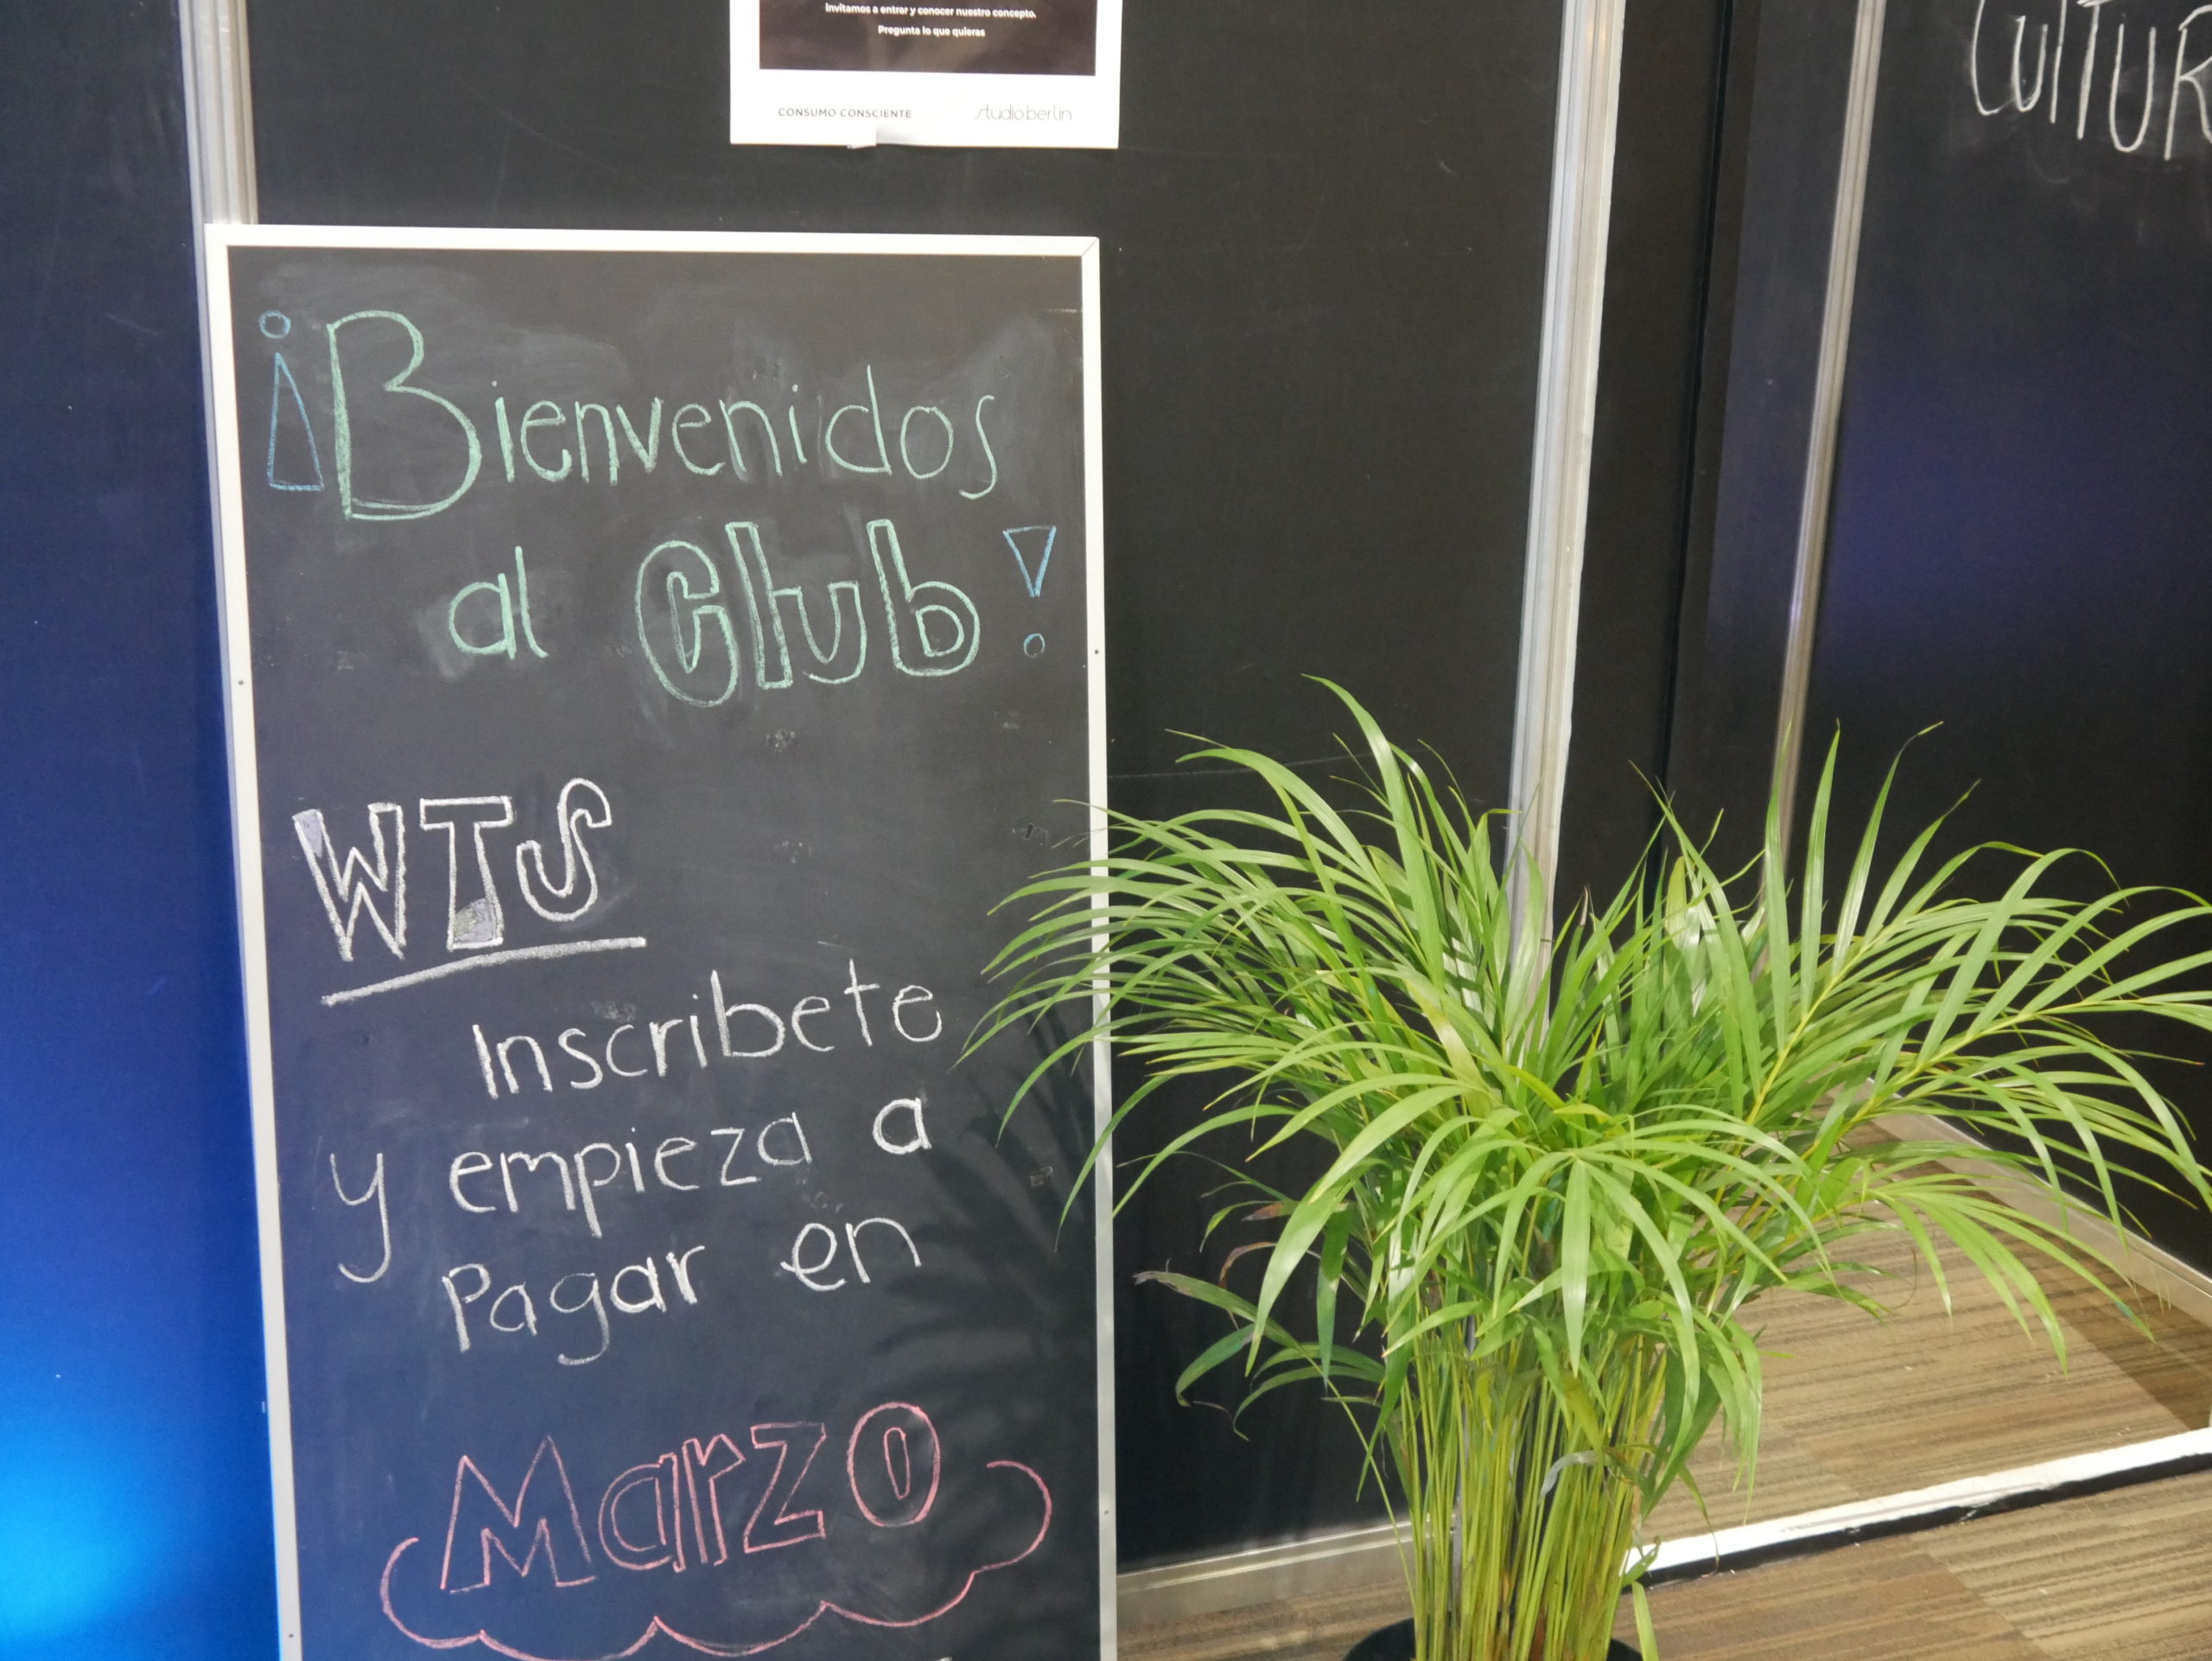 Invitamos a entrar y conocer nuestro concepto.
Pregunta lo que quieras
CONSUMO CONSCIENTE
studioberlin
CULTUR
¡Bienvenidos
al Club!
WTS
Inscribete
y empieza a
Pagar en
Marzo